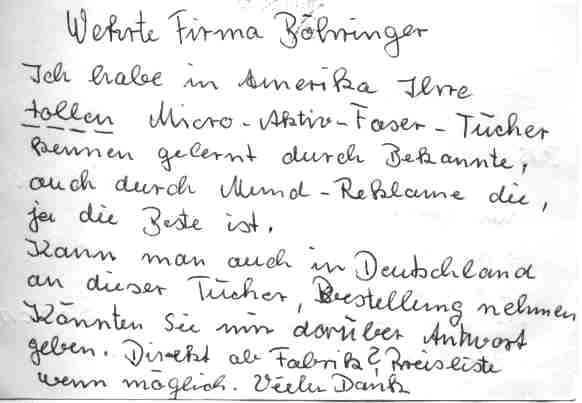 Wehrte Firma Böhringer
Ich habe in Amerika Ihre
tollen Micro-Aktiv-Faser-Tücher
kennen gelernt durch Bekannte,
auch durch Mund-Reklame die,
ja die Beste ist.
Kann man auch in Deutschland
an dieser Tücher, Bestellung nehmen
Könnten Sie mir darüber Antwort
geben. Direkt ab Fabrik?, Preisliste
wenn möglich. Vielen Dank